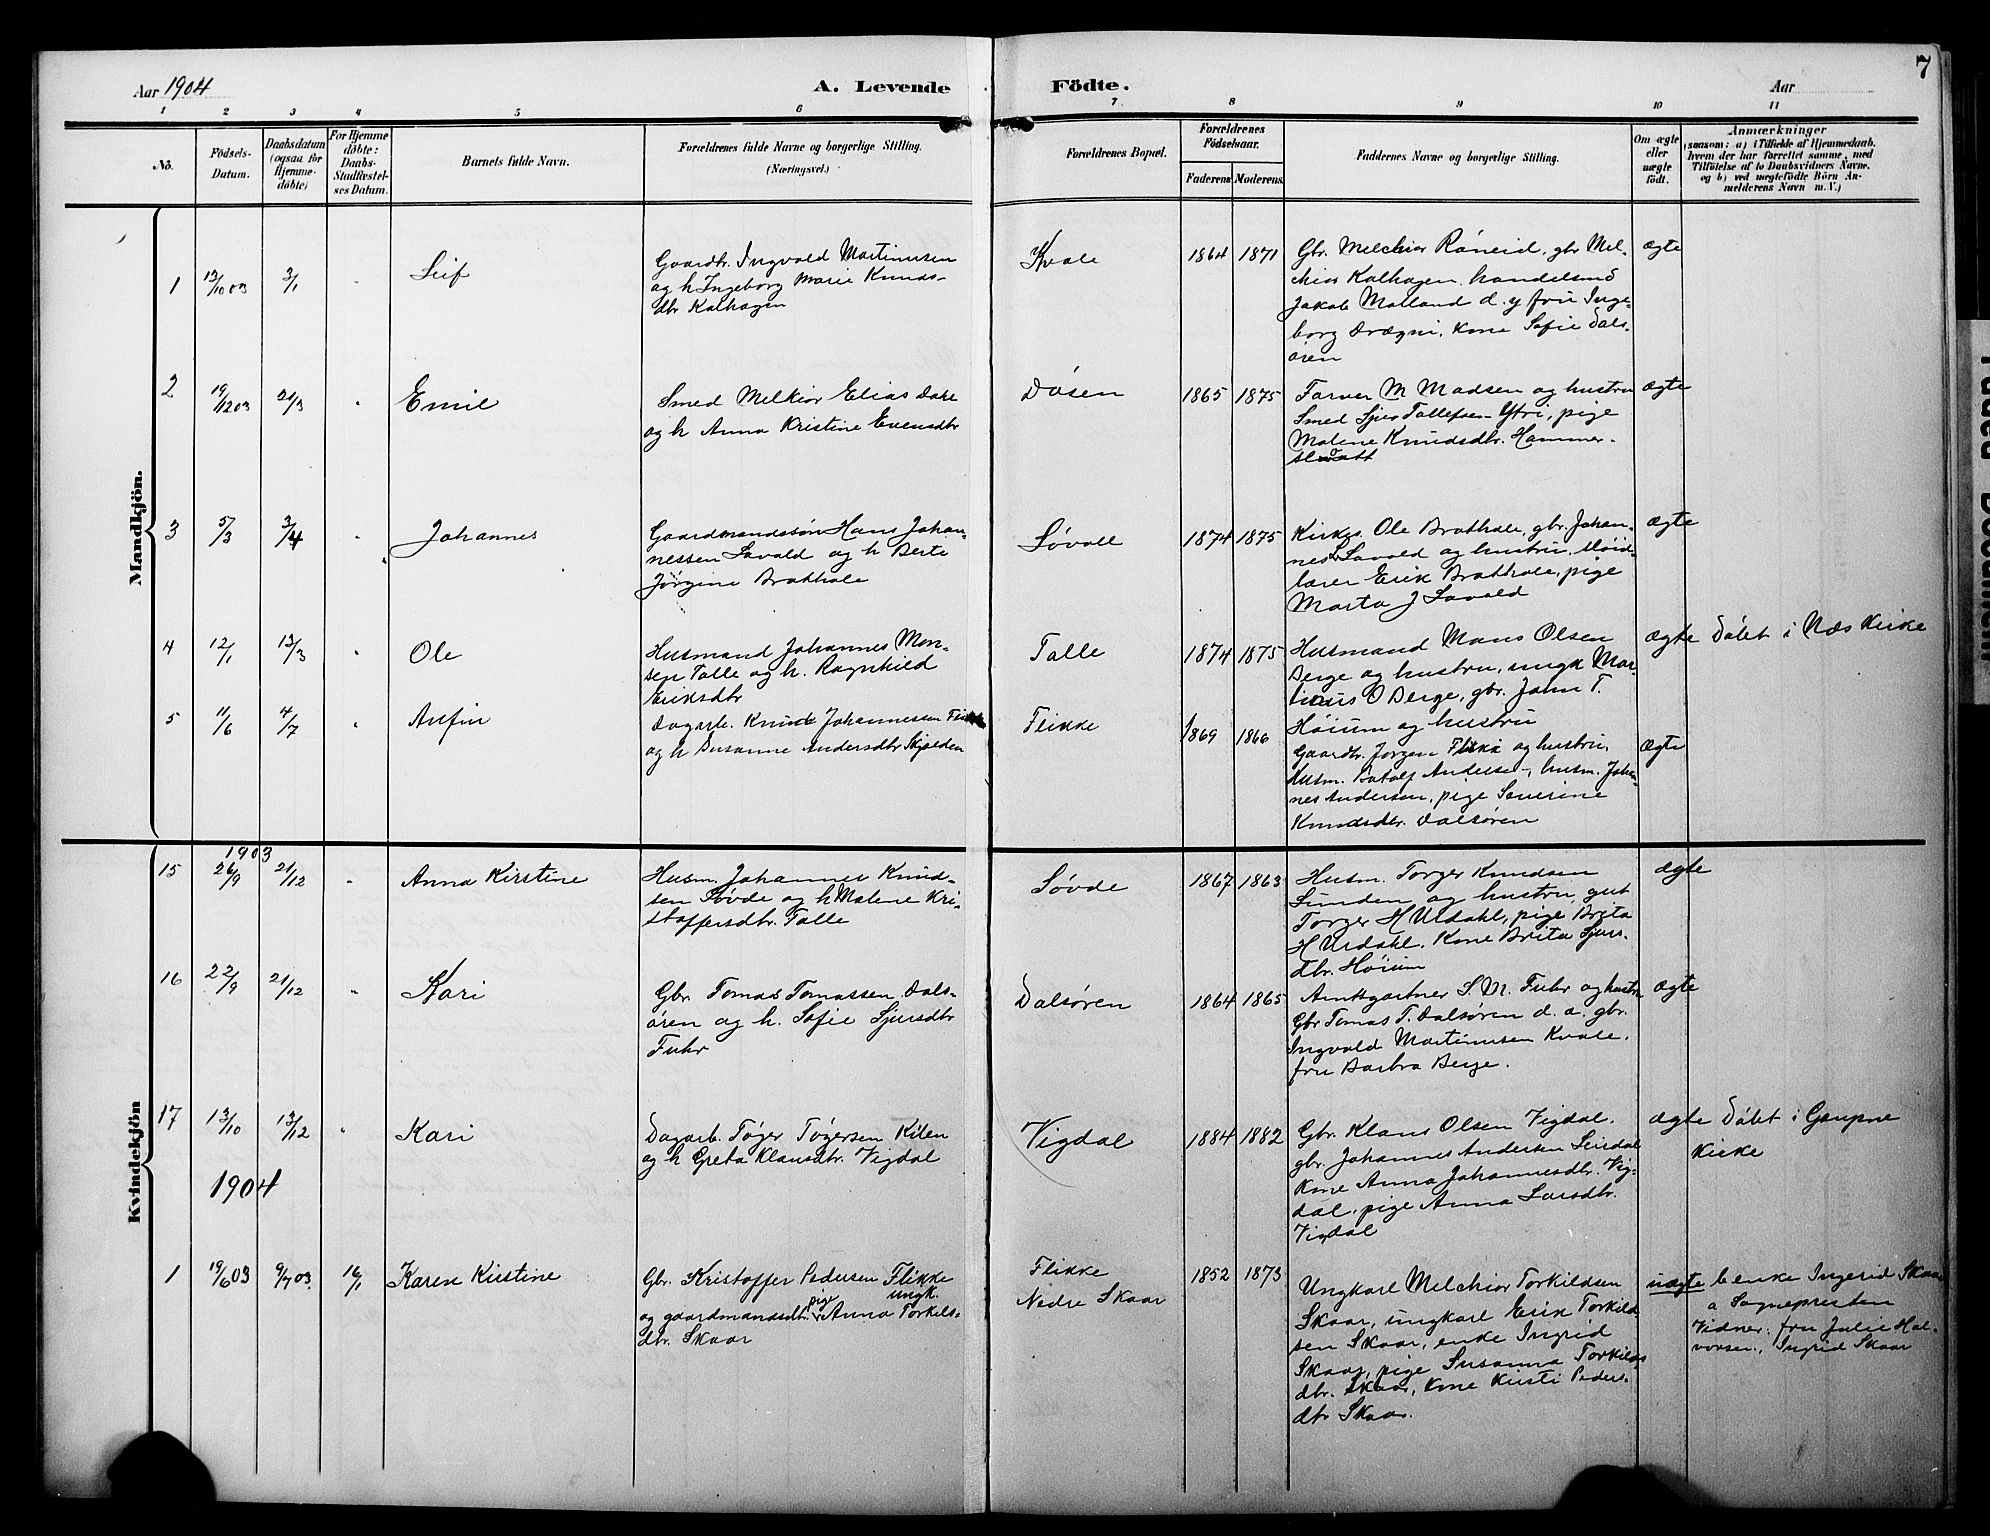 Aar 1904
A. Levende Födte.
Aar
7
1 2 3 4 5 6 7 8 9 10 11
No.
Födsels-Datum.
Daabsdatum (ogsaa for Hjemme-döbte)
For Hjemme döbte: Daabs-Stadfæstel-ses Datum.
Barnets fulde Navn.
Forældrenes fulde Navne og borgerlige Stilling. (Næringsvei.)
Forældrenes Bopæl.
Forældrenes Födselsaar.
Faderens Moderens
Faddernes Navne og borgerlige Stilling.
Om ægte eller uægte födt.
Anmærkninger
(saasom: a) i Tilfælde af Hjemmedaab, hvem der har forrettet samme, med Tilföielse af to Daabsvidners Navne. og b) ved uægtefödte Börn An-melderens Navn m. V.)
Mandkjön.
1 13/10 03 3/1 " Leif
Gaardbr. Ingvald Martinusen
og h Ingeborg Marie Knuds-
dtr Kalhagen
Kvale 1864 1871
Gbr. Melchior Röneid, gbr Mel-
chior Kalhagen, handelsmd
Jakob Molland d. y fru Inge-
borg Drægni, kone Sofie Dals-
ören
ægte
2 19/12 03 21/3 " Emil
Smed Melkior Elias Døse
og h Anna Kristine Evensdtr
Døsen 1865 1875
Farver M Madsen og hustru
Smed Sjur Tollefsen Ytri, pige
Malene Knudsdtr. Hammer-
ægte
3 5/3 3/4 " Johannes
Gaardmandssøn Hans Johan-
nessen Lavold og h Berte
Jørgine Bratthole
Søvoll 1874 1875
Kirkes. Ole Bratthole, gbr. Johan-
nes L Lavold og hustru, sløid-
lærer Erik Bratthole, pige
Marta J Lavold
ægte
4 12/1 13/3 " Ole
Husmand Johannes Mon-
sen Talle og h. Ragnhild
Eriksdtr
Talle 1874 1875
Husmand Mons Olsen
Berge og hustru, ungk Mar-
tinus O Berge, gbr. John T.
Høium og hustru
ægte Døbt i Næs Kirke
5 11/6 4/7 " Anfin
Dagarb. Knud Johannessen Flikke
og h Susanne Andersdtr Skjolden
Flikke 1869 1866
Gaardbr. Jørgen Flikke og hustru,
Husm. Botolf Andersen, husm. Johan-
nes Andersen, pige Severine
Knudsdtr. Dalsøren
Ægte
Kvindekjön
1903
15 26/9 21/12 " Anna Kirstine
Husm. Johannes Knud-
sen Søvde og h Malene Kri-
stoffersdtr. Talle
Søvde 1867 1863
Husm. Torger Knudsen
Sunden og hustru, gut
Torger H Urdahl, pige Brita
H Urdahl. Kone Brita Sjurs-
dtr. Høium
ægte
16 22/9 21/12 " Kari
Gbr Tomas Tomassen Dals-
ören og h. Sofie Sjursdtr
Fuhr
Dalsøren 1864 1865
Amtsgartner S. M. Fuhr og hustru
Gbr Tomas T. Dalsøren d. a. gbr.
Ingvald Martinusen Kvale,
fru Barbra Berge.
ægte
17 13/10 13/12 " Kari
Dagarb. Tøger Tøgersen Kilen
og h Greta Klausdtr. Vigdal
Vigdal 1884 1882
Gbr. Klaus Olsen Vigdal.
gbr. Johannes Andersen Snedal
Kone Anna Johannesdtr. Vig-
dal, pige Anna Larsdtr.
Vigdal
ægte Døbt i Gaupne
Kirke
1904
1 19/6 03 9/7 03 16/1 Karen Kirstine
Gbr. Kristoffer Pedersen Flikke
ungk.
og gaardmandsdtr. pige Anna Torkils-
dtr. Skaar
Flikke
Nedre Skaar
1852 1873
Ungkarl Melchior Torkildsen
Skaar, ungkarl Erik Torkild-
sen Skaar, enke Ingrid
Skaar, pige Susanna Torkilds
dtr. Skaar, kone Kirsti Peders-
dtr Skaar.
uægte b enke Ingerid Skaar
a Sognepresten
Vidner: fru Julie Hal-
vorsen, Ingrid Skaar